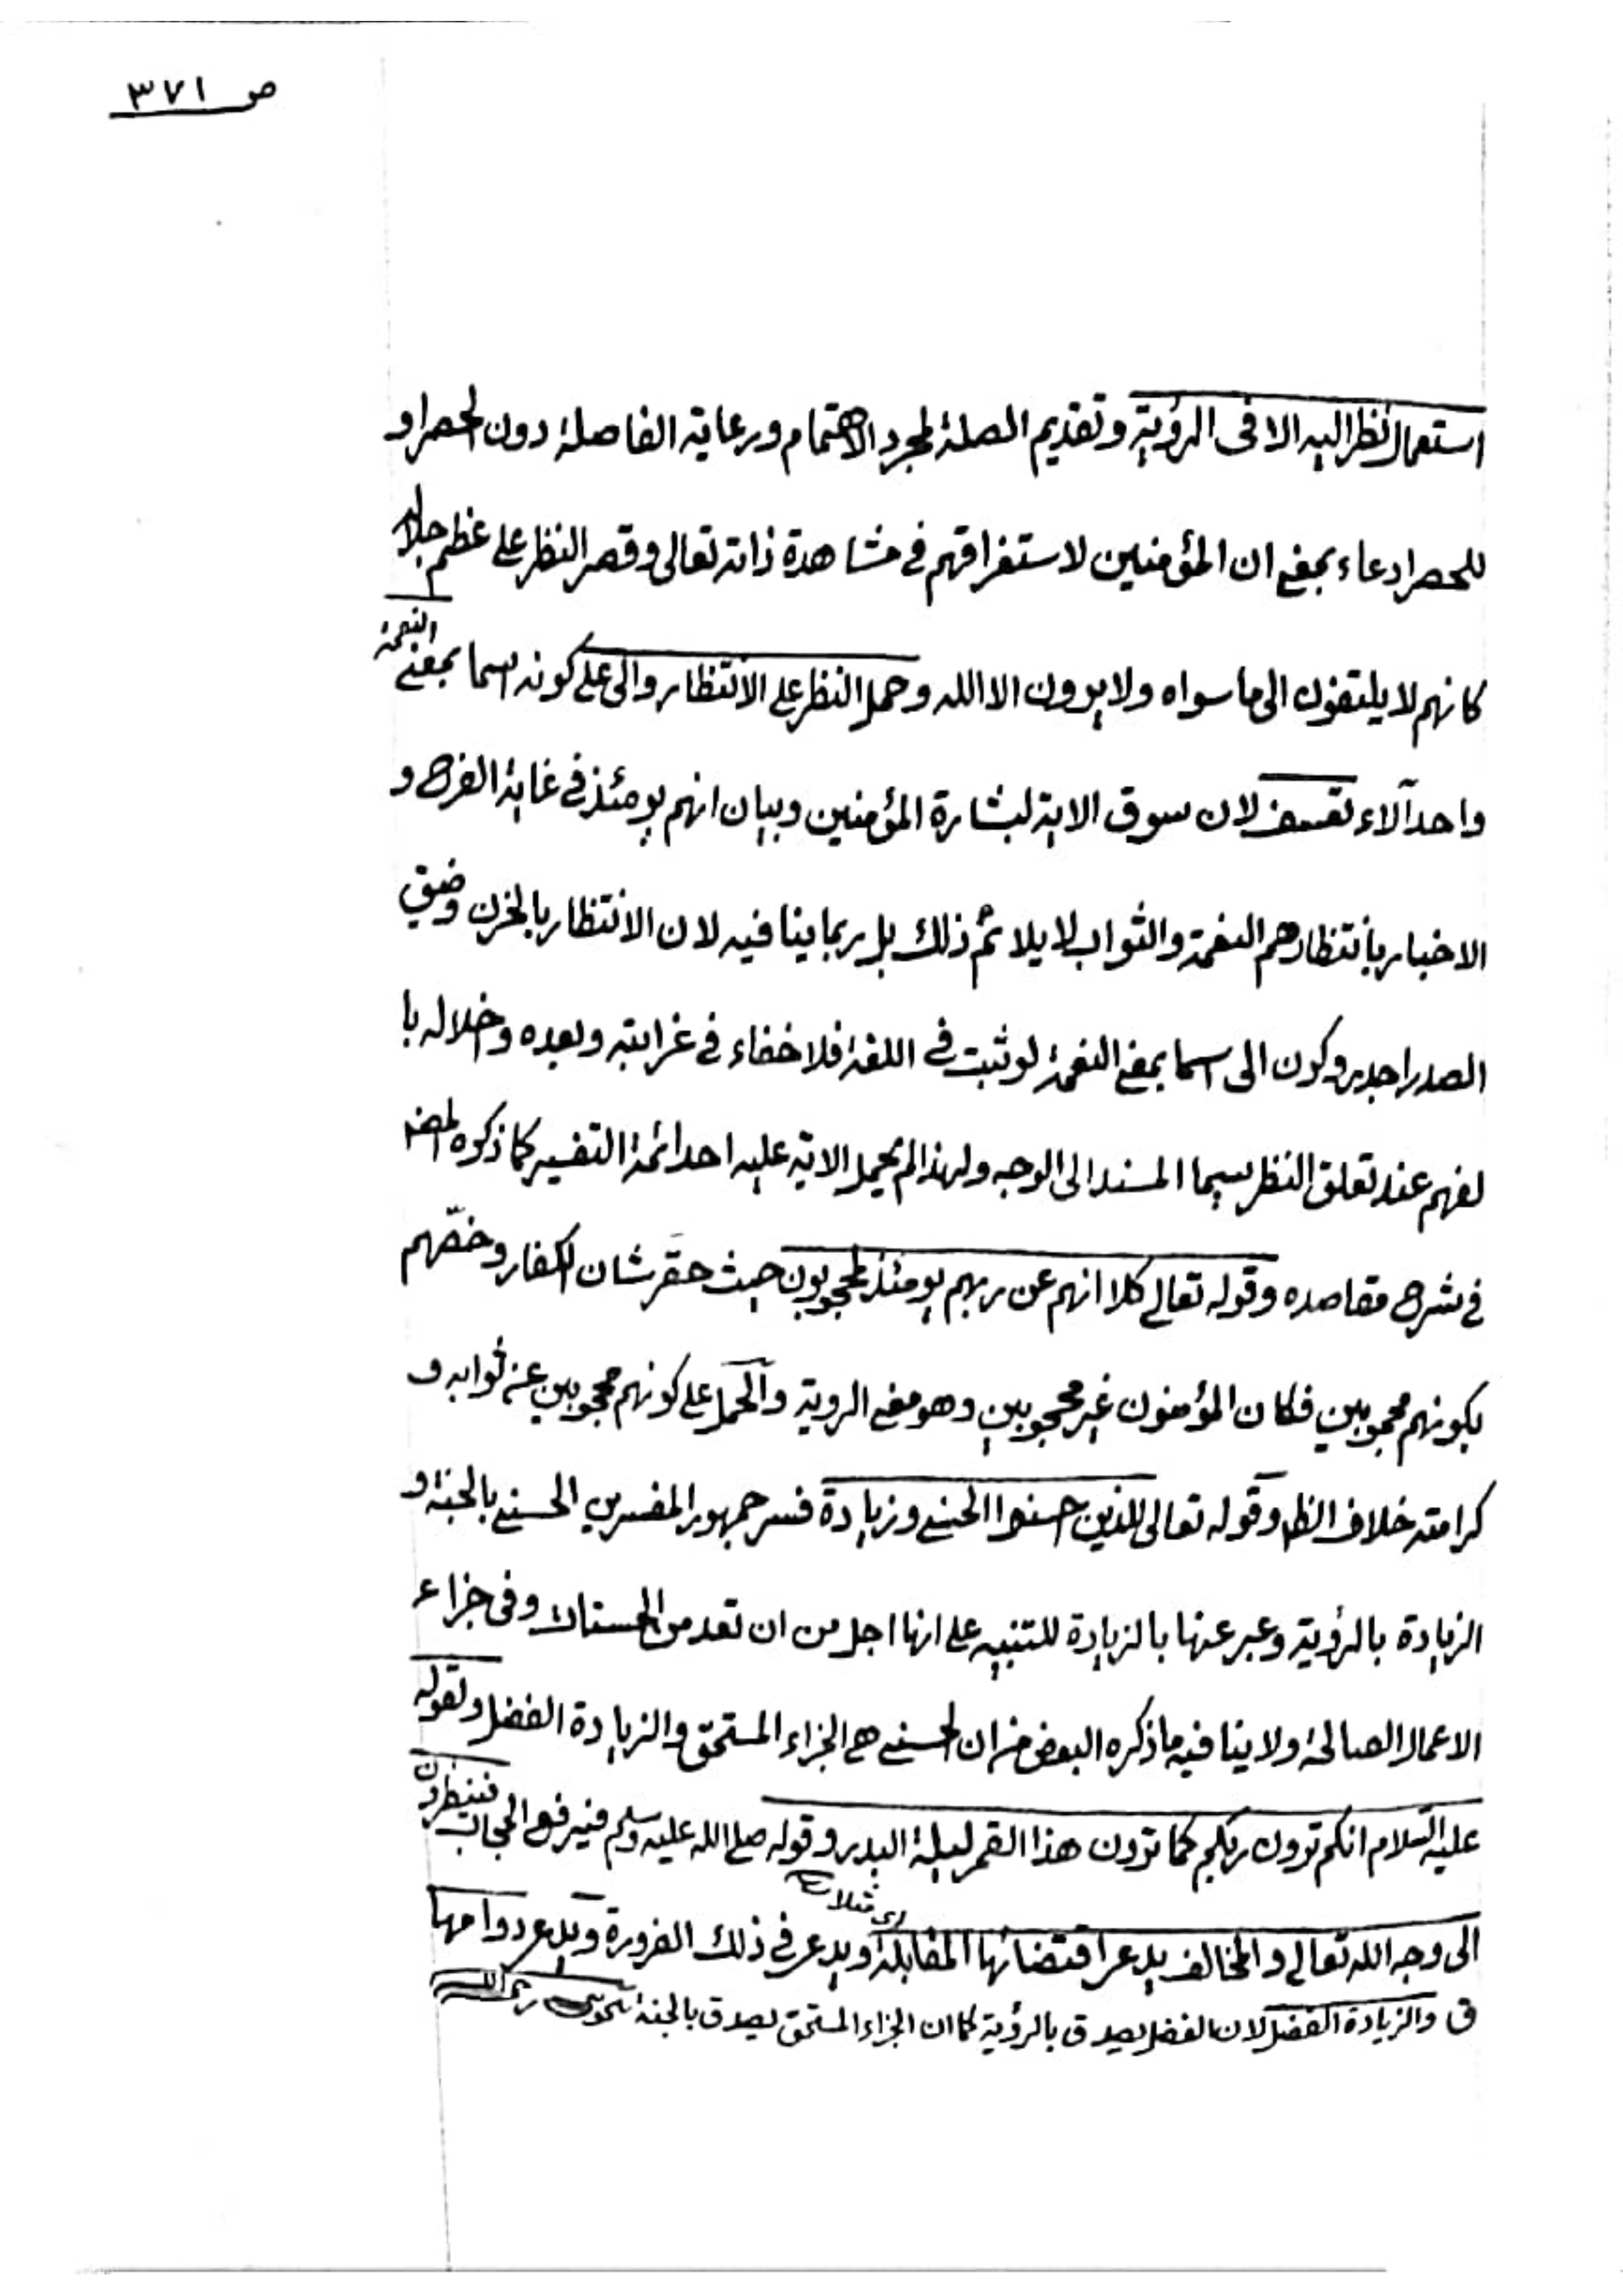 ص ٣٧١
استعمال نظر اليه الا فى الرؤية وتقديم الصلة لمجرد الاهتمام ورعاية الفاصلة دون الحصر او
للحصر ادعاء بمعنى ان المؤمنين لاستغراقهم فى مشاهدة ذاته تعالى وقصر النظر على عظم جلاله
كانهم لا يلتفتون الى ما سواه ولا يرون الا الله وحمل النظر على الانتظار والى على كونه اسما بمعنى النعمة
واحد آلاء تعسف لان سوق الاية لبشارة المؤمنين وبيان انهم يومئذ فى غاية الفرح و
الاخبار بانتظارهم النعمة والثواب لا يلائم ذلك بل ربما ينافيه لان الانتظار بالحزن وضيق
الصدر اجدر وكون الى اسما بمعنى النعمة لو ثبت فى اللغة فلا خفاء فى غرابته وبعده وخلاله با
لفهم عند تعلق النظر سيما المسند الى الوجه ولهذا لم يحمل الاية عليه احد ائمة التفسير كما ذكره المصـ
فى شرح مقاصده وقوله تعالى كلا انهم عن ربهم يومئذ لمحجوبون حيث حقر شان الكفار وخصّهم
بكونهم محجوبين فكان المؤمنون غير محجوبين وهو معنى الروية والحمل على كونهم محجوبين عن ثوابه و
كرامته خلاف الظا وقوله تعالى للذين احسنوا الحسنى وزيادة فسر جمهور المفسرين الحسنى بالجنة و
الزيادة بالرؤية وعبر عنها بالزيادة للتنبيه على انها اجل من ان تعد من الحسنات وفى جزاء
الاعمال الصالحة ولا ينافيه ما ذكره البعض من ان الحسنى هى الجزاء المستحق والزيادة الفضل ولقوله
عليه السلام انكم ترون ربكم كما ترون هذا القمر ليلة البدر وقوله صلى الله عليه وسلم فيرفع الحجاب فينظرون
الى وجه الله تعالى والمخالف يدعى اقتضائها المقابلة ويدعى فى ذلك الضرورة ويدعى دوامها
ق والزيادة الفضل لان الفضل يصدق بالرؤية كما ان الجزاء المستحق يصدق بالجنة